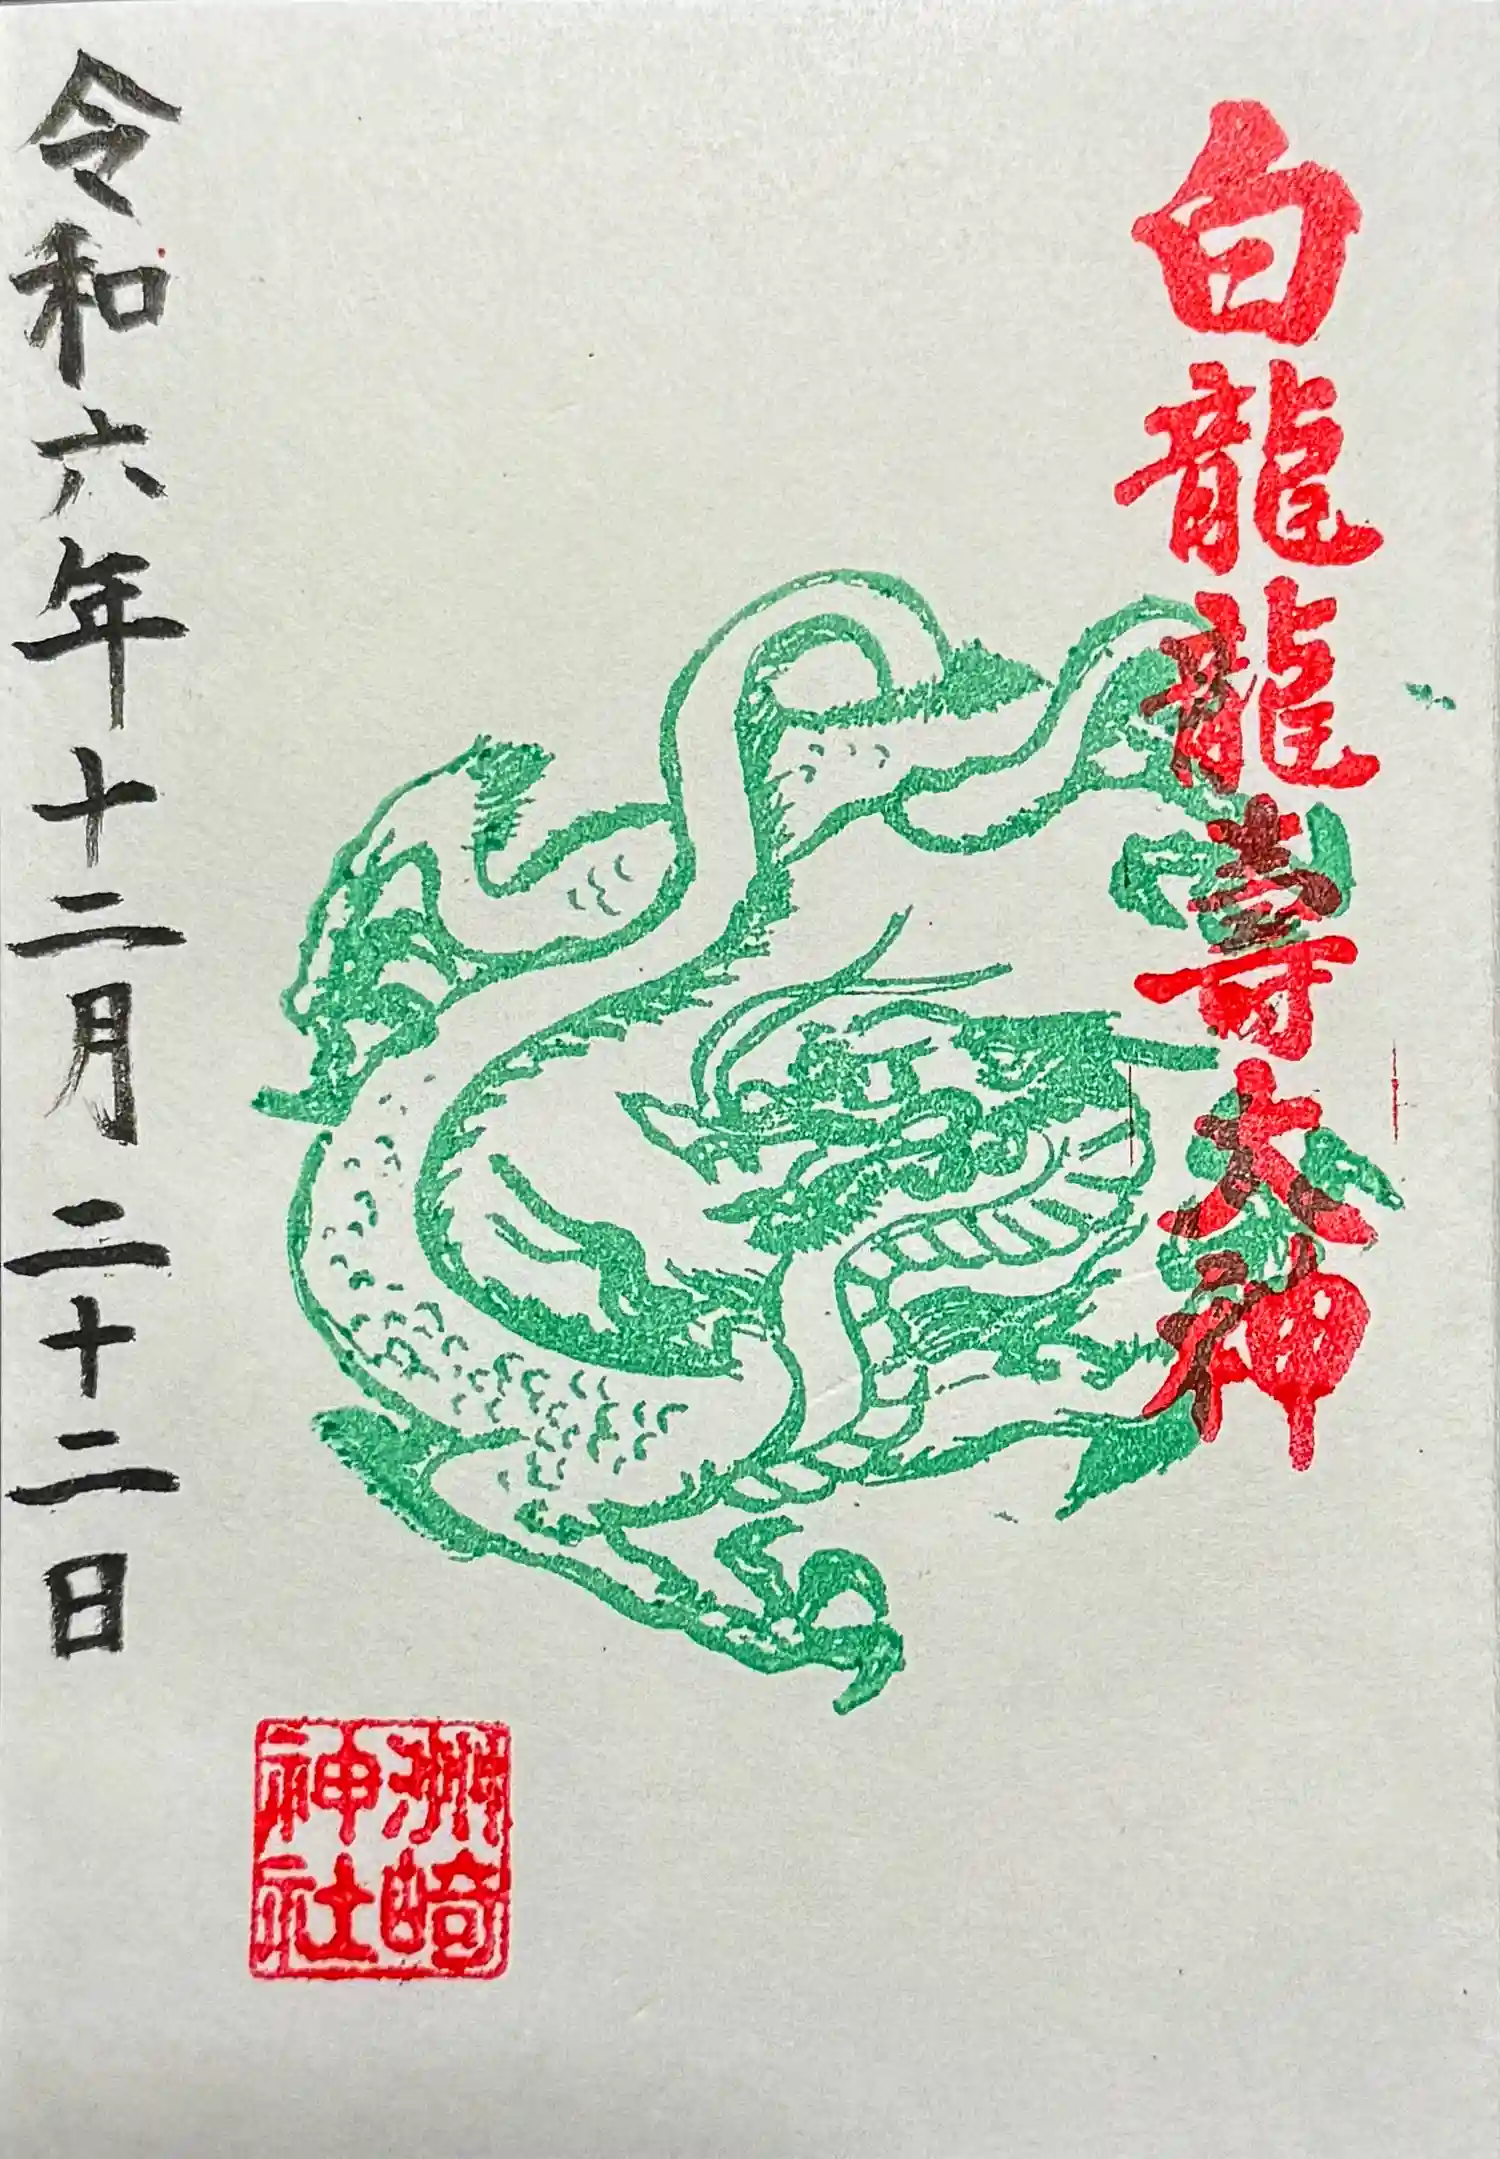 白龍龍壽大神
令和六年十二月二十二日
洲崎
神社